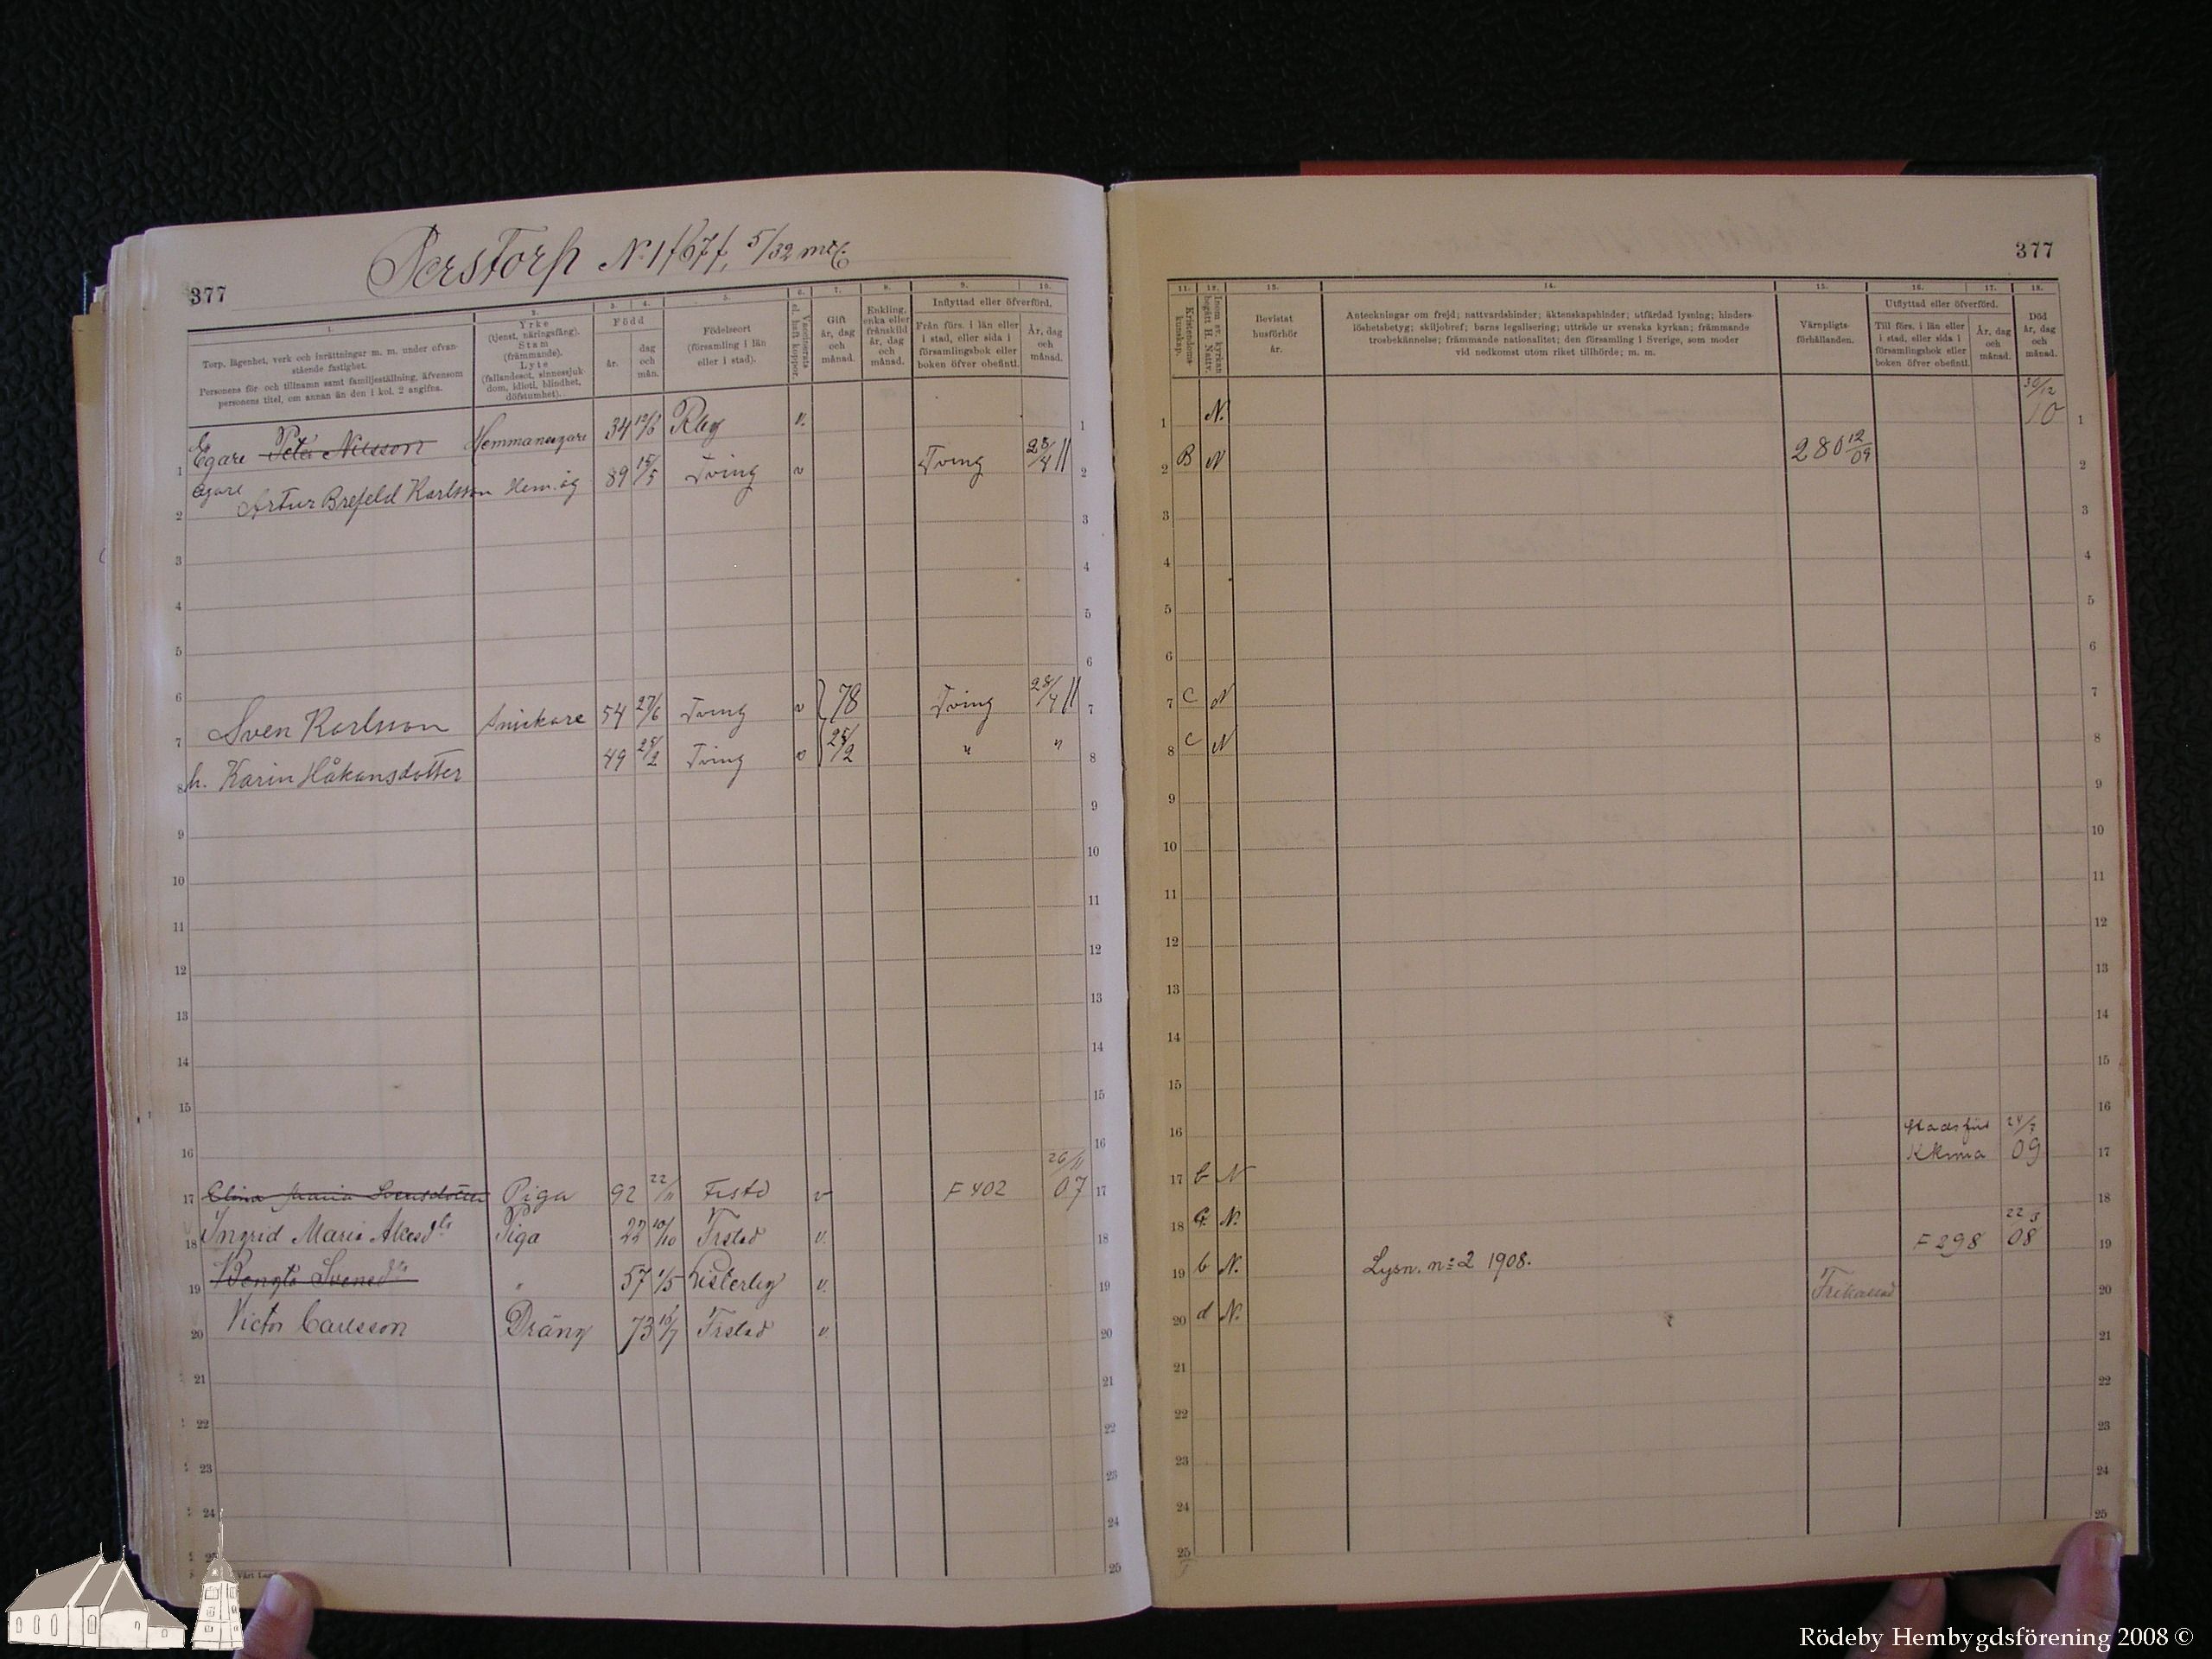 Perstorp N:1 f676f, 5/32 mtl.
377
377
1.
2.
3.
4.
5.
6.
7.
8.
9.
10.
Torp, lägenhet, verk och inrättningar m. m. under ofvan-
stående fastighet.
Personens för- och tillnamn samt familjeställning, äfvensom
personens titel, om annan än den i kol. 2 angifna.
Yrke
(tjenst, näringsfång).
Stam
(främmande).
Lyte
(fallandesot, sinnessjuk-
dom, idioti, blindhet,
döfstumhet).
Född
år.
dag
och
mån.
Födelseort
(församling i län
eller i stad).
Vaccinerats
el. haft koppor.
Gift
år, dag
och
månad.
Enkling,
enka eller
frånskild
år, dag
och
månad.
Inflyttad eller öfverförd,
Från förs. i län eller
i stad, eller sida i
församlingsbok eller
boken öfver obefintl.
År, dag
och
månad.
11.
12.
13.
14.
15.
16.
17.
18.
Kristendoms-
kunskap.
Inom sv. kyrkan
begått H. Nattv.
Bevistat
husförhör
år.
Anteckningar om frejd; nattvardshinder; äktenskapshinder; utfärdad lysning; hinders-
löshetsbetyg; skiljobref; barns legalisering; utträde ur svenska kyrkan; främmande
trosbekännelse; främmande nationalitet; den församling i Sverige, som moder
vid nedkomst utom riket tillhörde; m. m.
Värnpligts-
förhållanden.
Utflyttad eller öfverförd.
Till förs. i län eller
i stad, eller sida i
församlingsbok eller
boken öfver obefintl.
År, dag
och
månad.
Död
år, dag
och
månad.
1 Egare Peter Nilsson Hemmansegare 34 Rby v. N. 30/12 10
2 Egare Artur Brefeld Karlsson Hem.äg 89 15/5 Tving v Tving 28/4 11 B N 280 12/09
3
4
5
6
7 Sven Karlsson Snickare 54 27/6 Tving v 78 Tving 28/4 11 C N
8 h. Karin Håkansdotter 49 25/2 Tving v 25/2 " " C N
9
10
11
12
13
14
15
16
17 Elina Maria Svensdotter Piga 92 22/11 Frstd v F 402 26/11 07 b N Stadsförs Kkrona 24/3 09
18 Ingrid Maria Åkesdtr Piga 22 10/10 Frstad v. N.
19 Bengta Svensdtr " 57 1/5 Listerby v. b N. Lysn. n:2 1908. F 298 22/3 08
20 Victor Carlsson Dräng 73 16/7 Frstad v. d N. Frikallad
21
22
23
24
25
Rödeby Hembygdsförening 2008 ©